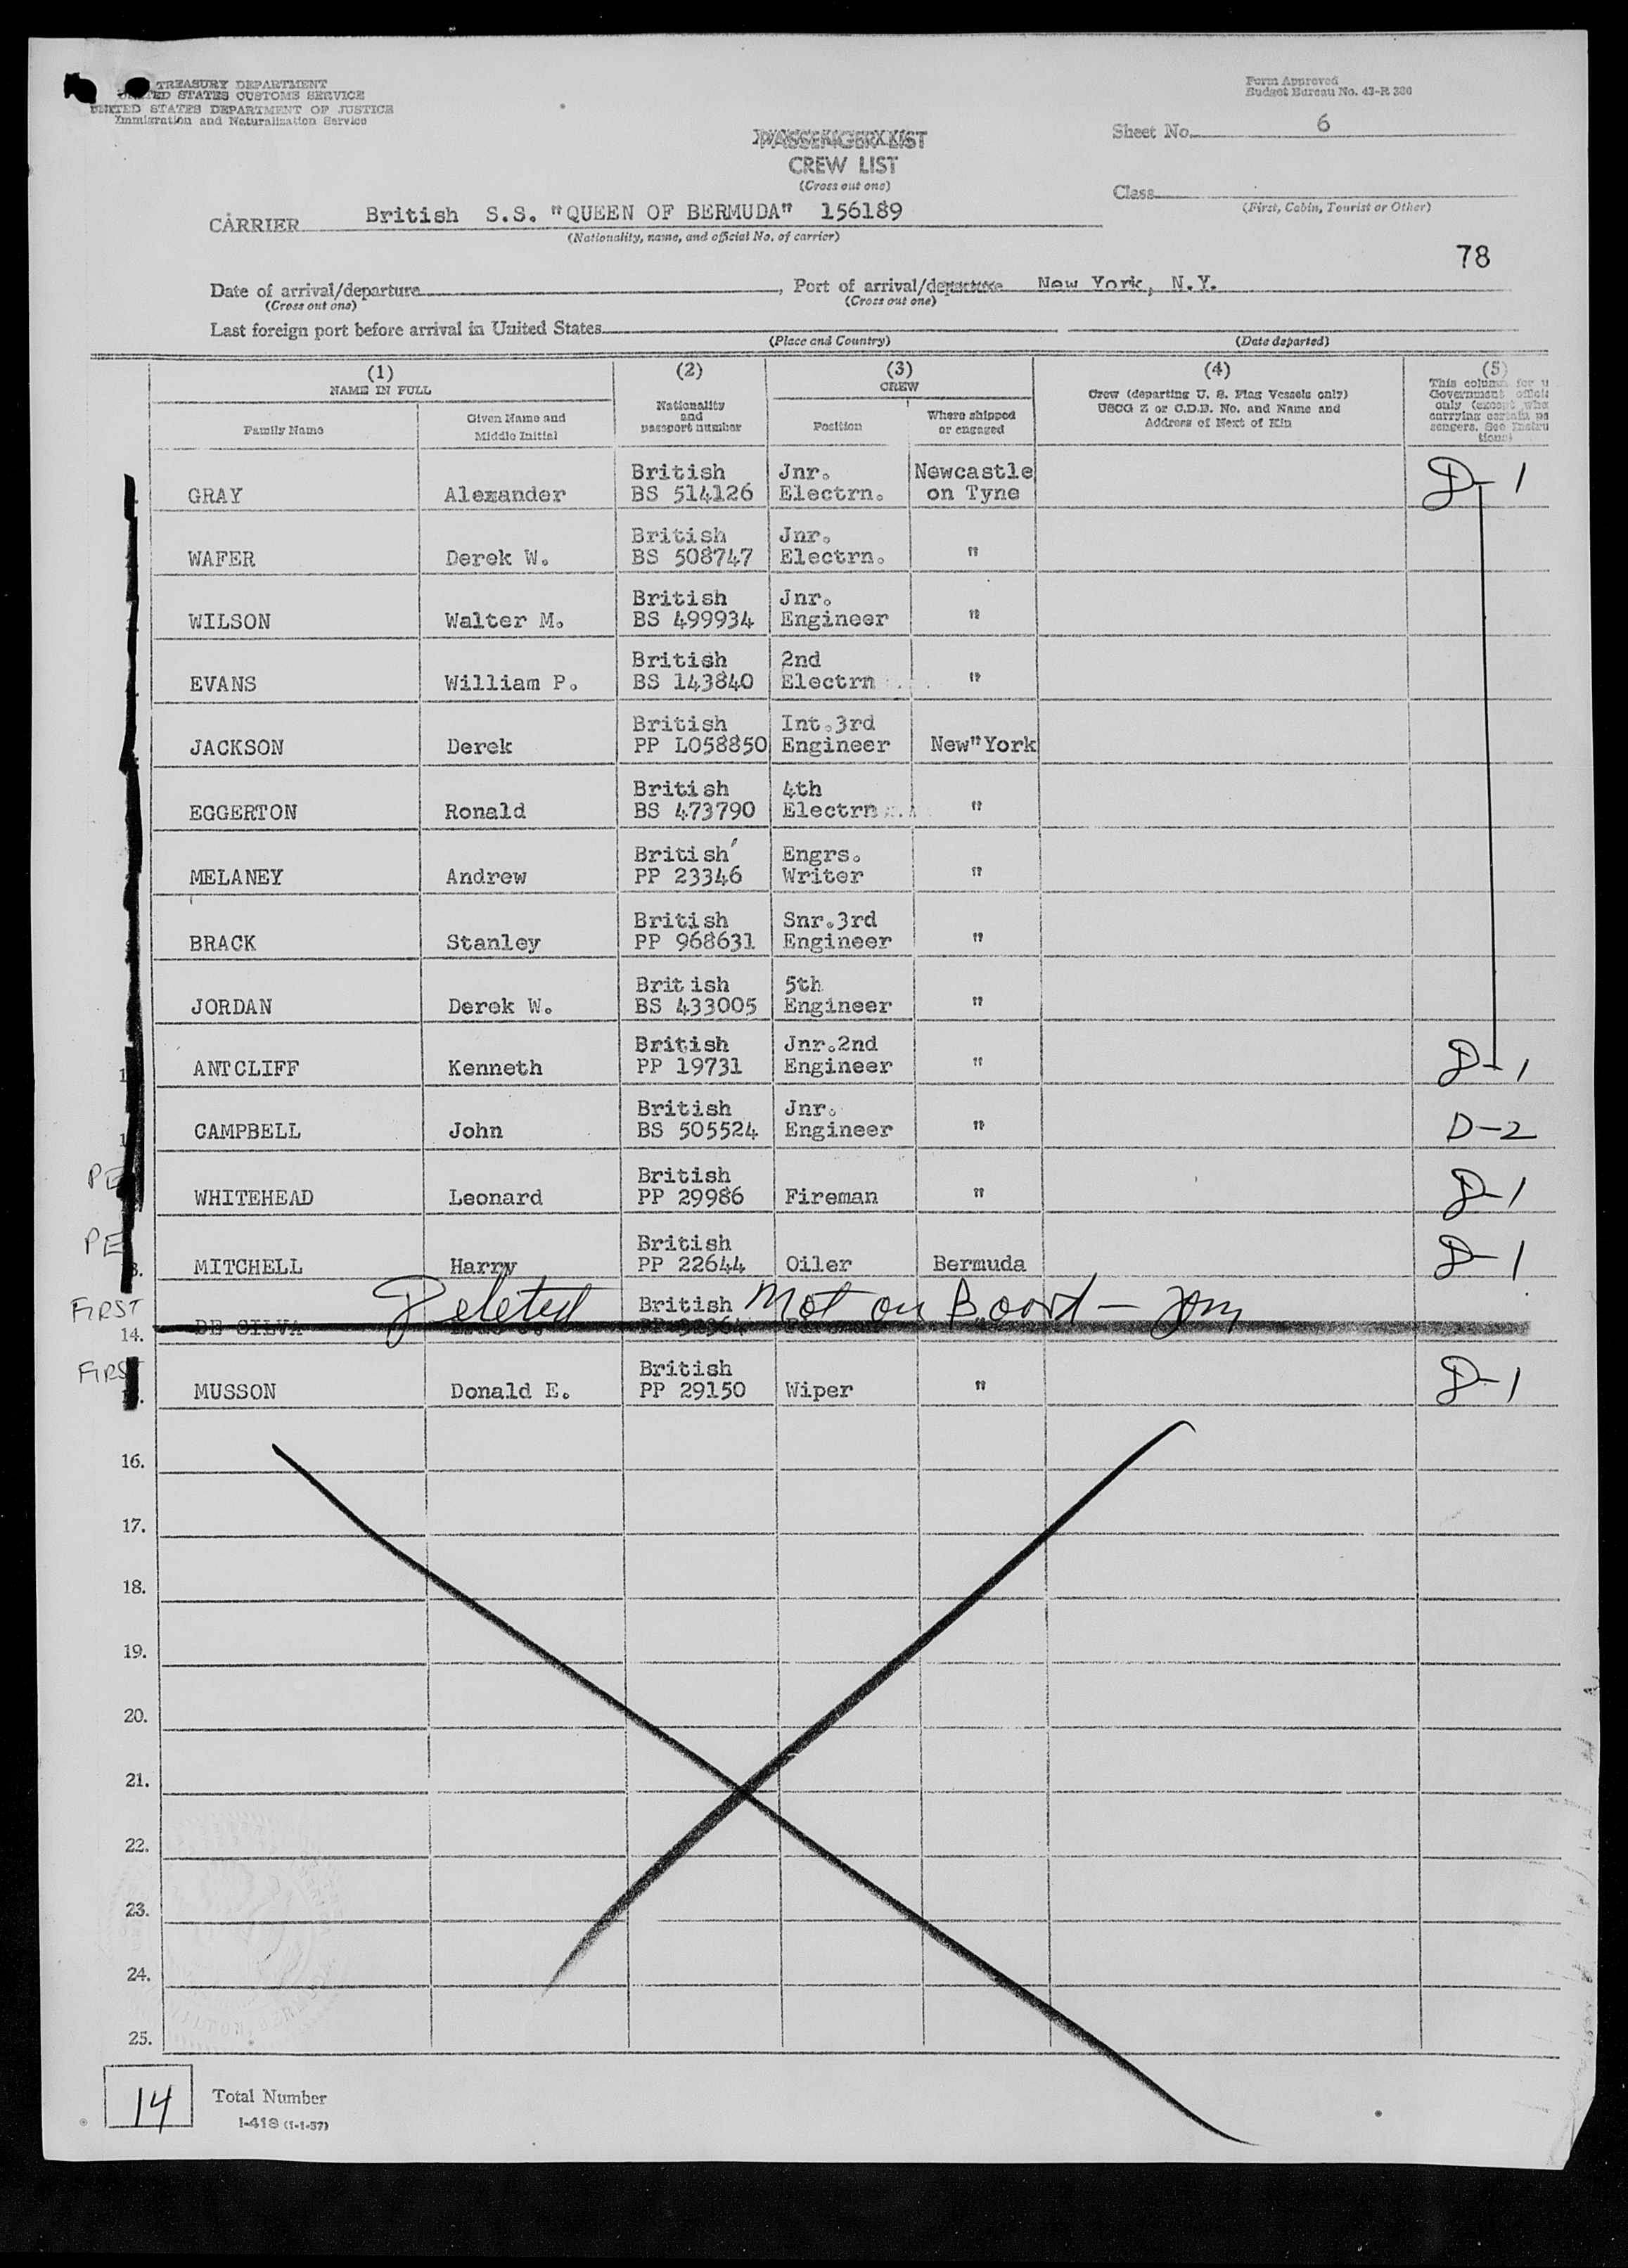 TREASURY DEPARTMENT
UNITED STATES CUSTOMS SERVICE
UNITED STATES DEPARTMENT OF JUSTICE
Immigration and Naturalization Service
Form Approved
Budget Bureau No. 43-R 386
Sheet No. 6
PASSENGER LIST
CREW LIST
(Cross out one)
Class
(First, Cabin, Tourist or Other)
CARRIER British S.S. "QUEEN OF BERMUDA" 156189
(Nationality, name, and official No. of carrier)
78
Date of arrival/departure , Port of arrival/departure New York, N.Y.
(Cross out one) (Cross out one)
Last foreign port before arrival in United States
(Place and Country) (Date departed)
(1) (2) (3) (4) (5)
NAME IN FULL
Family Name
Given Name and
Middle Initial
Nationality
and
passport number
CREW
Position
Where shipped
or engaged
Crew (departing U. S. Flag Vessels only)
USCG Z or C.D.B. No. and Name and
Address of Next of Kin
This column for u
Government offici
only (except whe
carrying certain pa
sengers. See Instru
tions)
British Jnr. Newcastle
GRAY Alexander BS 514126 Electrn. on Tyne D-1
British Jnr.
WAFER Derek W. BS 508747 Electrn. "
British Jnr.
WILSON Walter M. BS 499934 Engineer "
British 2nd
EVANS William P. BS 143840 Electrn "
British Int.3rd
JACKSON Derek PP L058850 Engineer New"York
British 4th
EGGERTON Ronald BS 473790 Electrn "
British Engrs.
MELANEY Andrew PP 23346 Writer "
British Snr.3rd
BRACK Stanley PP 968631 Engineer "
British 5th
JORDAN Derek W. BS 433005 Engineer "
British Jnr.2nd
ANTCLIFF Kenneth PP 19731 Engineer " D-1
British Jnr.
CAMPBELL John BS 505524 Engineer " D-2
PE British
WHITEHEAD Leonard PP 29986 Fireman " D-1
PE British
MITCHELL Harry PP 22644 Oiler Bermuda D-1
FIRST Deleted British Not on Board -
14. DE SILVA
FIRST British
MUSSON Donald E. PP 29150 Wiper " D-1
16.
17.
18.
19.
20.
21.
22.
23.
24.
25.
14 Total Number
I-418 (1-1-57)